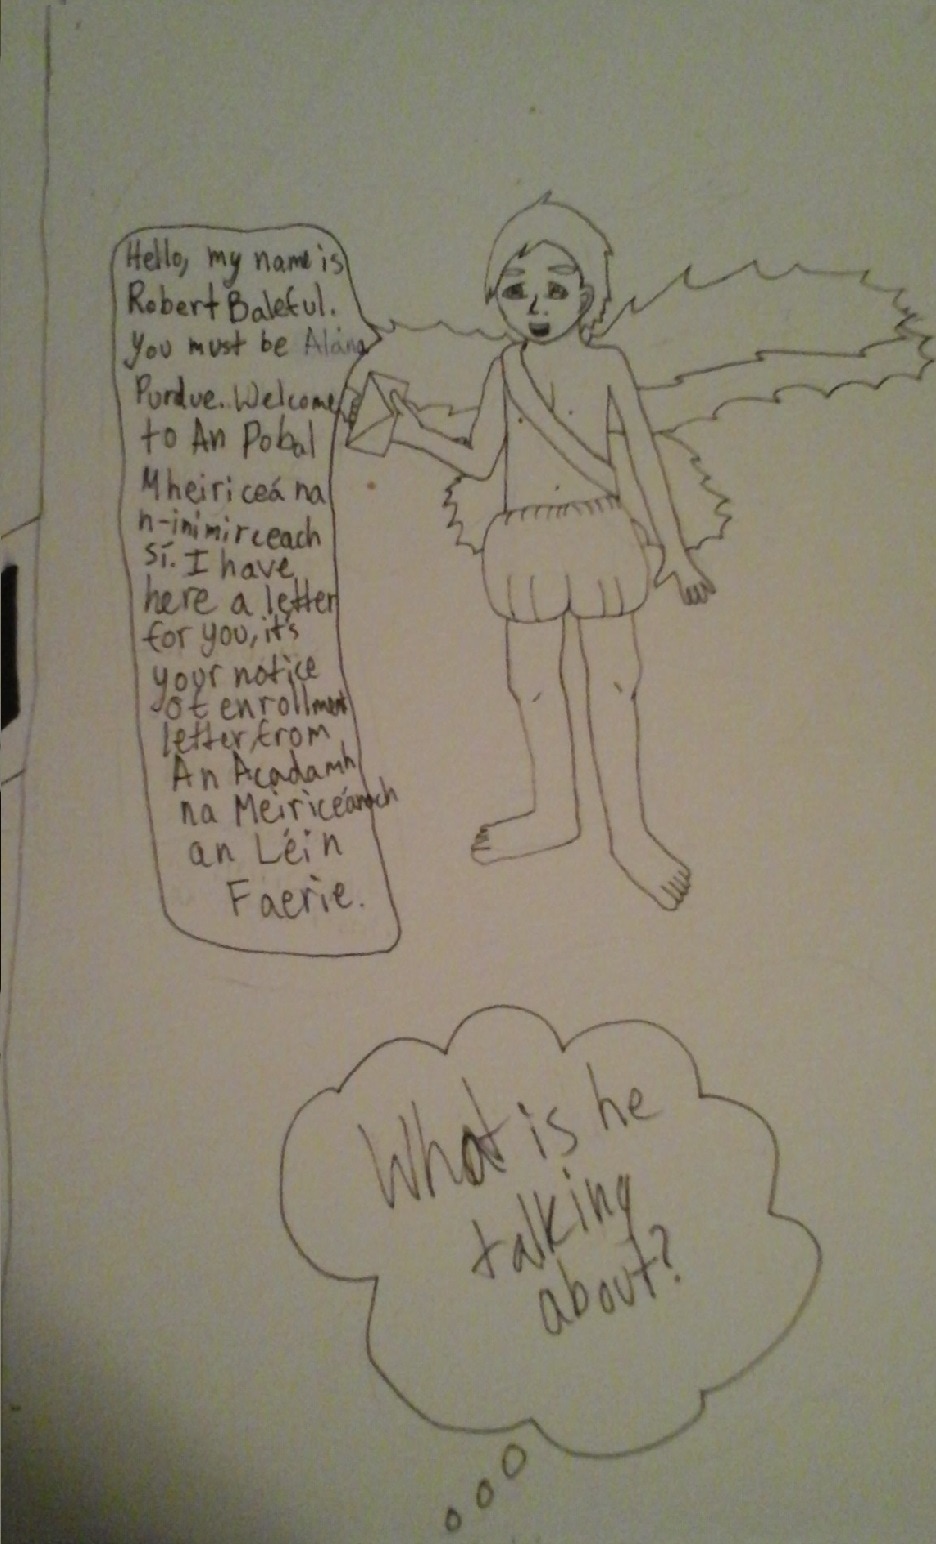 Hello, my name is
Robert Baleful.
You must be Alana
Purdue. Welcome
to An Pobal
Mheiriceá na
n-inimirceach
sí. I have
here a letter
for you, it's
your notice
of enrollment
letter from
An Acadamh
na Meiriceánach
an Léin
Faerie.
What is he
talking
about?